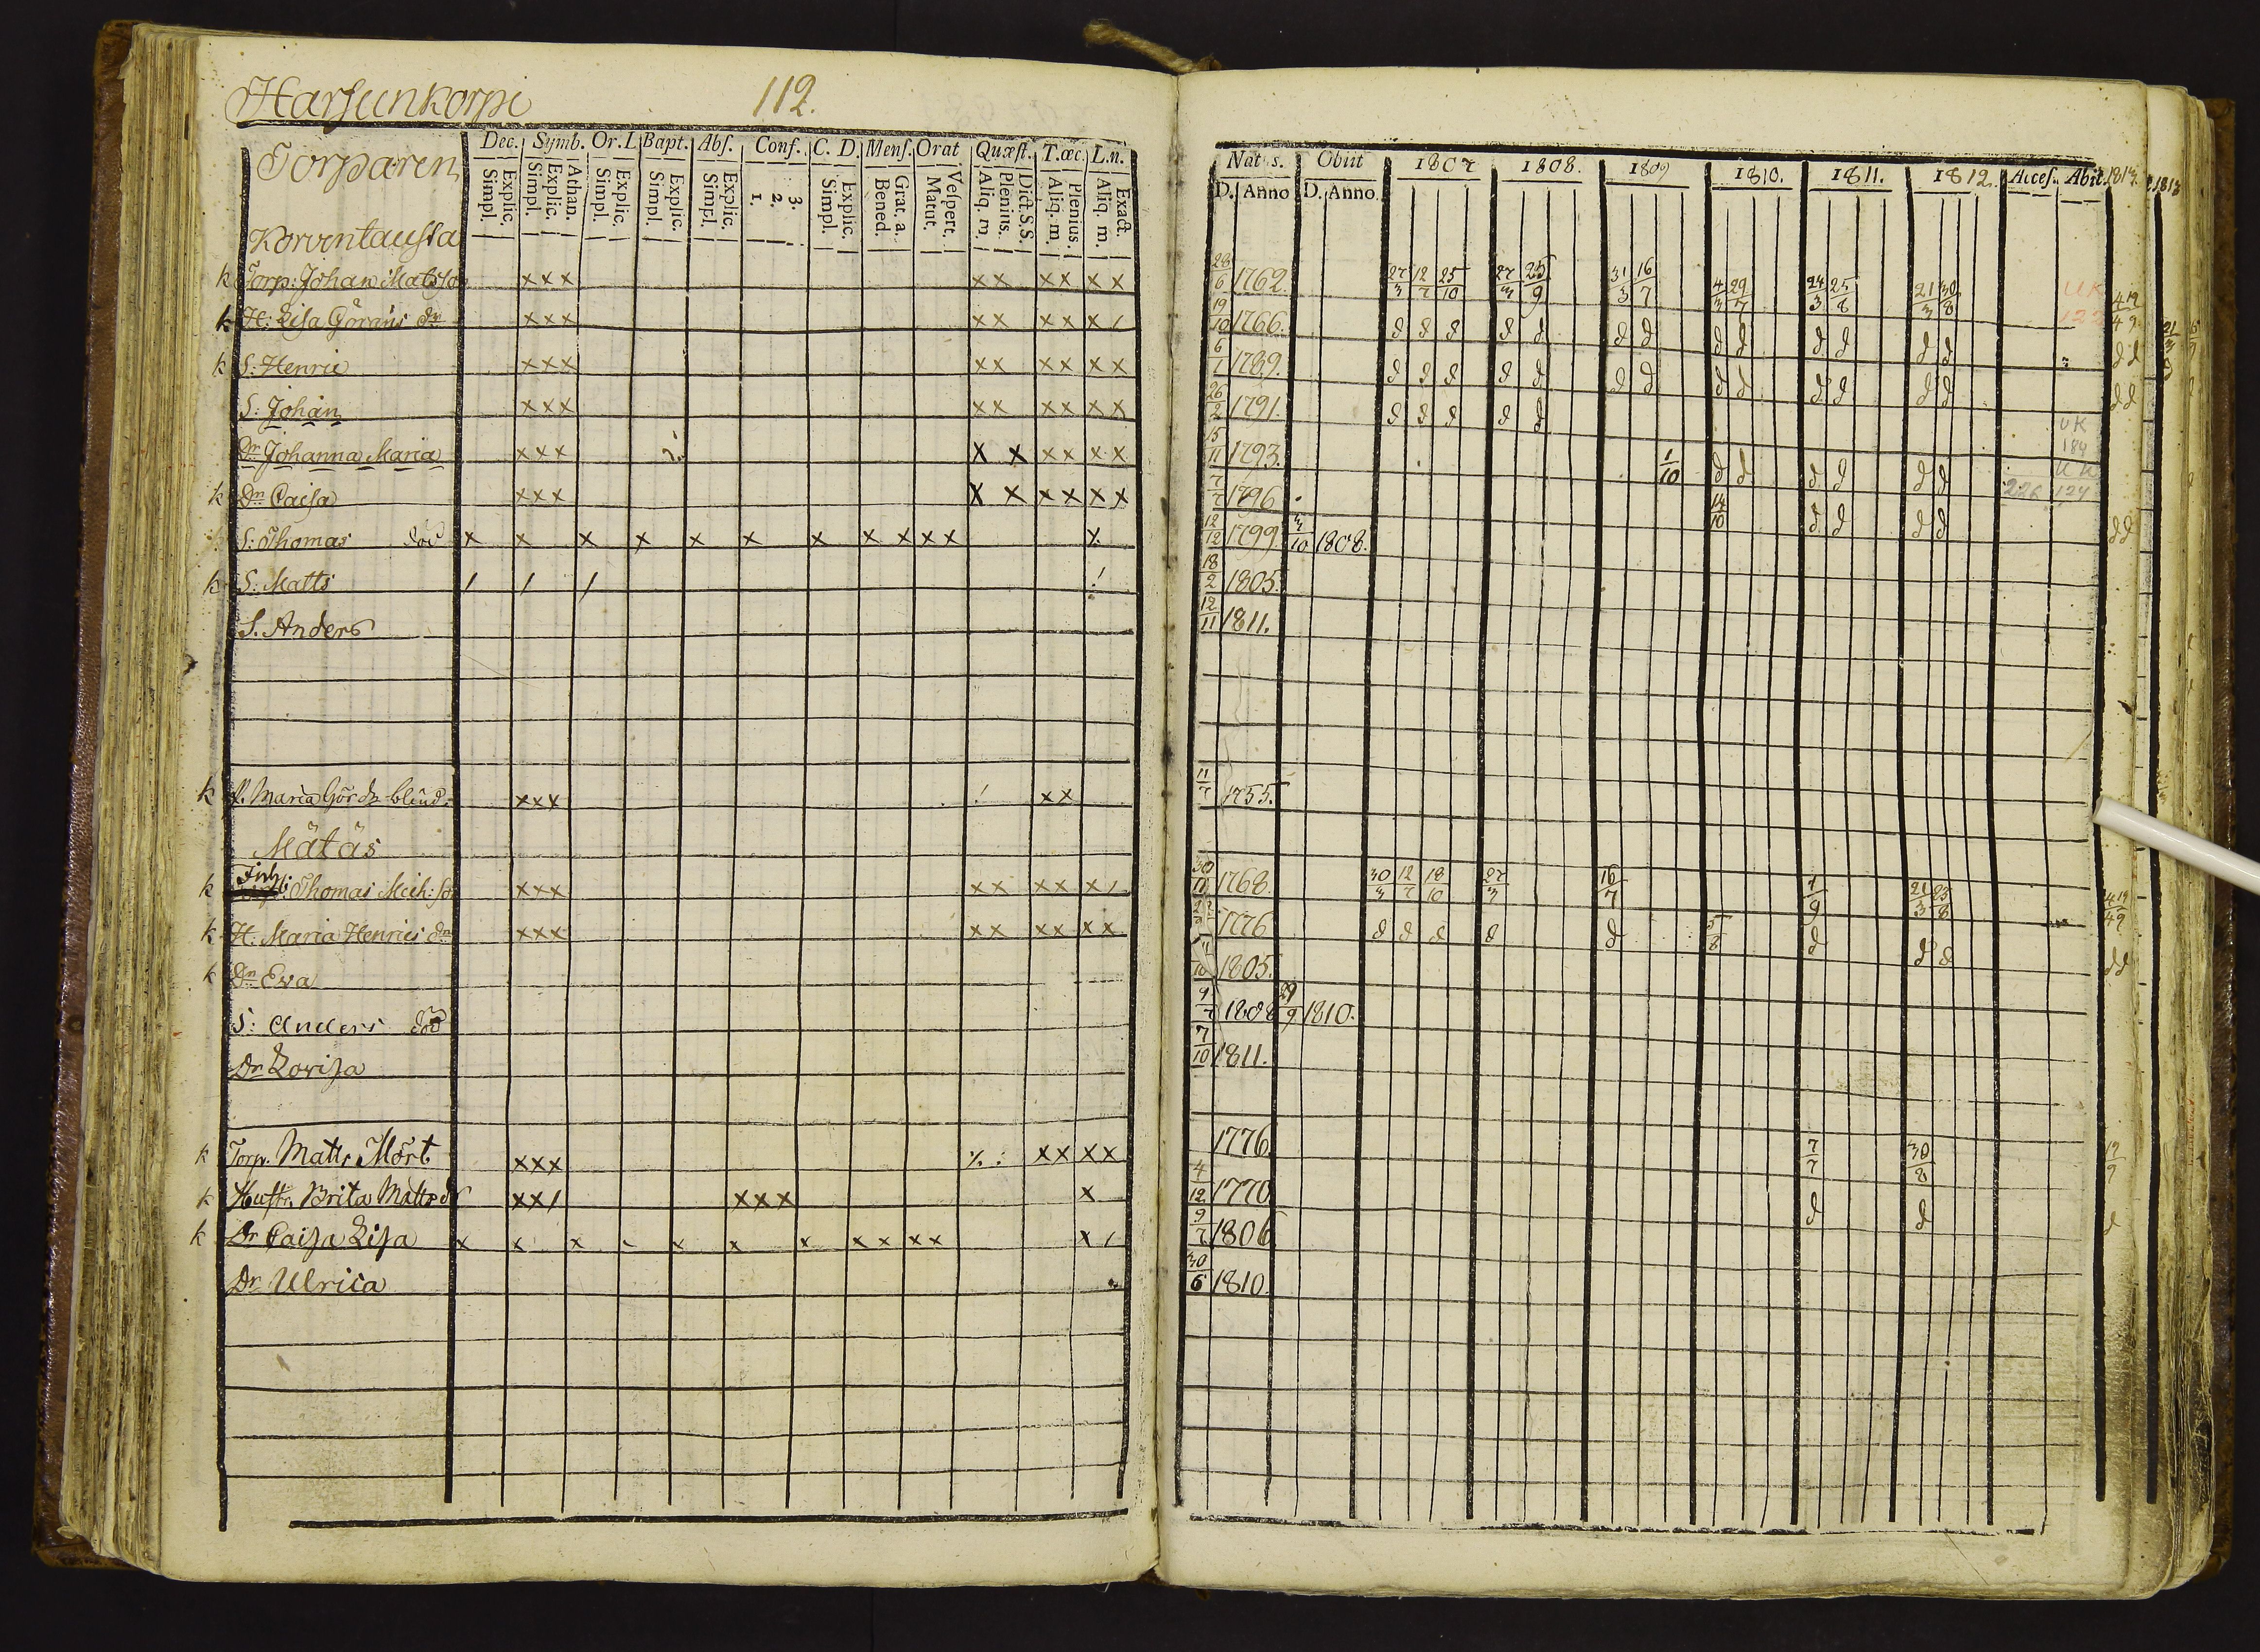 Harsunkorpi 112.
Torparen
Dec. Symb. Or. L Bapt. Abs. Conf. C. D. Mens. Orat Quæst. T. œc. L. n.
Explic. Simpl. Athan. Explic. Simpl. Explic. Simpl. Explic. Simpl. Explic. Simpl. 3. 2. 1. Explic. Simpl. Grat. a. Bened. Vespert. Matut. Dict. S. S. Plenius. Aliq. m. Plenius. Aliq. m. Exact. Aliq. m.
Nat s. Obiit 1807 1808. 1809 1810. 1811. 1812. Acces. Abit. 1813. 1813
D. Anno D. Anno
Korventausta
k Torp: Johan Matsson xxx xx xx xx 28/6 1762. 27/3 12/7 25/10 27/3 25/9 31/3 16/7 4/3 29/7 24/3 25/8 21/3 30/8
k H: Lisa Görans dr xxx xx xx x/ 19/10 1766. d d d d d d d d d d d d d
k S: Henric xxx xx xx xx 6/1 1789. d d d d d d d d d d d d d
S: Johan xxx xx xx xx 26/2 1791. d d d d d UK 184
Dr Johanna Maria xxx x x xx xx 15/11 1793. 1/10 d d d d d d
k Dr Caisa xxx x x xx xx 7/7 1796 14/10 d d d d 226 124
S: Thomas död x x x x x x x x x x x x 12/12 1799. 3/10 1808.
k S: Matts / / / 18/2 1805.
S. Anders 12/11 1811.
k Maria Gör dr blind. xxx xx 11/7 1755.
Mätäs
k Thomas Mich: son xxx xx xx x/ 30/11 1768. 30/3 12/7 18/10 27/3 16/7 1/9 21/3 23/8
k H. Maria Henrics dr xxx xx xx xx 1776 d d d d d 5/8 d d d
k Dr Eva 1805.
S: Anders död 9/7 1808 29/9 1810.
Dr Lovisa 7/10 1811.
k Torp. Matts Mört xxx xx xx 1776. 7/7 30/8
k Hustr. Brita Matts dr xx/ xxx x 4/12 1770. d d
k Dr Caisa Lisa x x x x x x x x x x x / 9/7 1806
Dr Ulrica 30/6 1810.